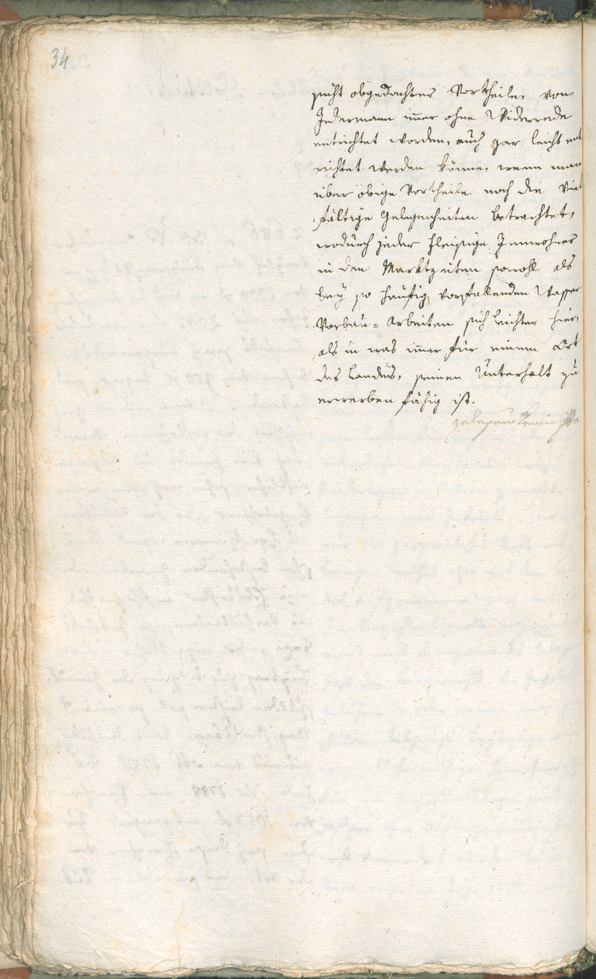 34
sicht obgedachter Vortheile, von
Jedermann immer ohne Widerrede
entrichtet worden, auch gar leicht ent
richtet werden könne, wenn man
über obige Vortheile noch die Viel
fältige Gelegenheiten betrachtet,
wodurch jeder fleißige Innwohner
in den Marktzeiten sowohl als
bey so häufig vorfallenden Wasser
Vorbau-Arbeiten sich leichter hier,
als in was immer für einem Ort
des Landes, seinen Unterhalt zu
erwerben fähig ist.